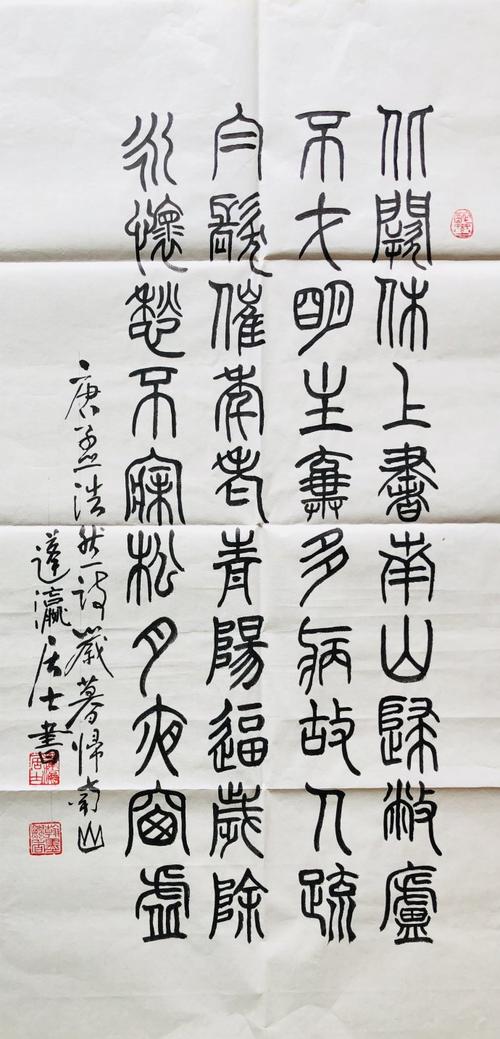 北闕休上書南山歸敝廬
不才明主棄多病故人疏
白髮催年老青陽逼歲除
永懷愁不寐松月夜窗虛
唐孟浩然詩歲暮歸南山
蓬瀛居士書